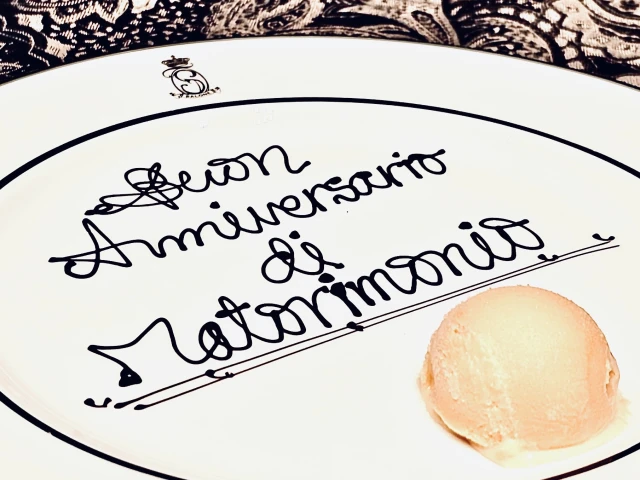 Buon
Anniversario
di
Matorimonio